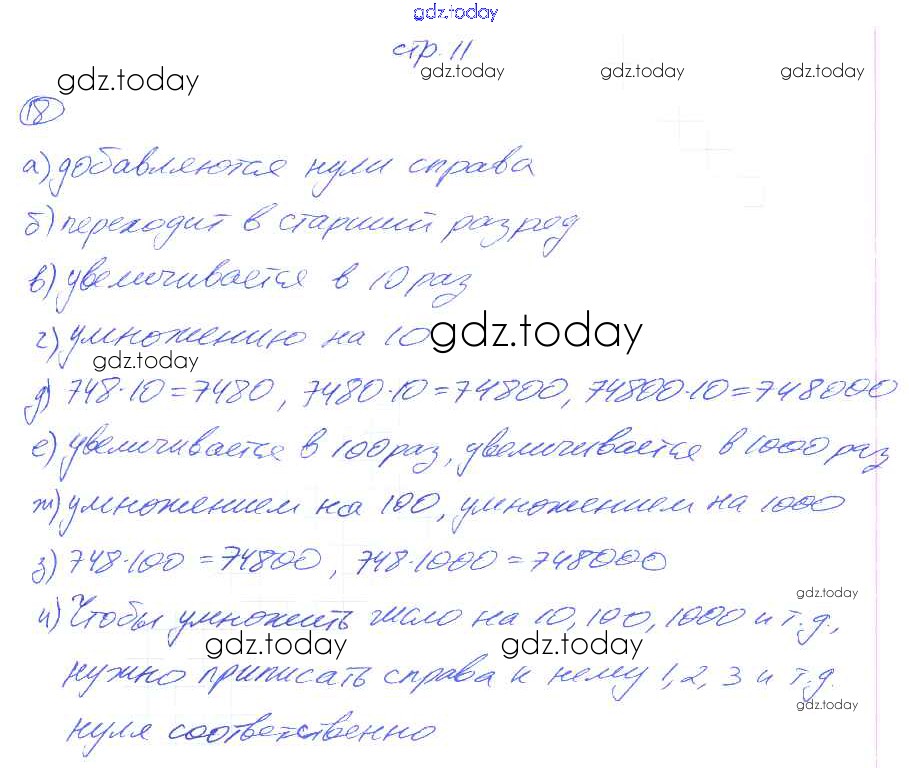 gdz.today
стр. 11
gdz.today gdz.today gdz.today gdz.today
18
а) добавляются нули справа
б) переходит в старший разряд
в) увеличивается в 10 раз
г) умножению на 10 gdz.today
gdz.today
д) 748·10=7480, 7480·10=74800, 74800·10=748000
е) увеличивается в 100 раз, увеличивается в 1000 раз
ж) умножением на 100, умножением на 1000
з) 748·100=74800, 748·1000=748000
gdz.today
и) Чтобы умножить число на 10, 100, 1000 и т.д.,
gdz.today gdz.today
нужно приписать справа к нему 1, 2, 3 и т.д.
gdz.today
нуля соответственно